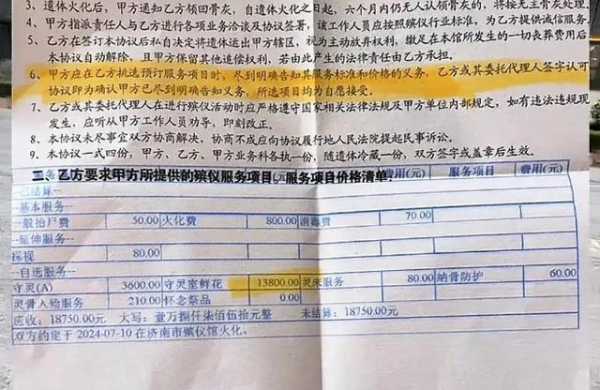 3、遗体火化后，甲方通知乙方领回骨灰，自遗体火化之日起，六个月内仍无人认领骨灰的，将按无主骨灰处理。
4、甲方指派责任人与乙方进行各项业务洽谈及协议签署，该工作人员应按照殡仪行业标准，为乙方提供诚信服务。
5、乙方在签订本协议后私自决定将遗体运出甲方辖区，视为主动放弃权利，缴足在本馆所发生的一切丧葬费用后
本协议自动解除，且甲方保留其他追偿权利，若由此产生的法律责任由乙方承担。
6、甲方应在乙方挑选预订服务项目时，尽到明确告知其服务标准和价格的义务，乙方或其委托代理人签字认可
协议即为确认甲方已尽到明确告知义务，所选项目均为自愿接受。
7、乙方或其委托代理人在进行殡仪活动时应严格遵守国家相关法律法规及甲方单位内部规定，如有违法违规现
发生，应听从甲方工作人员劝导，即刻改正。
8、本协议未尽事宜双方协商解决，协商不成应向协议履行地人民法院提起民事诉讼。
9、本协议一式四份，甲方、乙方、甲方业务科各执一份，随遗体冷藏一份，双方签字或盖章后生效。
二、乙方要求甲方所提供的殡仪服务项目、服务项目价格清单：
费用(元) 服务项目 费用(元)
--已结算--
--基本服务--
一般抬尸费 50.00 火化费 800.00 消毒费 70.00
--延伸服务--
80.00
--自选服务--
守灵(A) 3600.00 守灵室鲜花 13800.00 灵床服务 80.00 纳骨防护 60.00
灵骨入殓服务 210.00 怀念祭品 0.00
应收：18750.00元 大写：壹万捌仟柒佰伍拾元整 未结算：18750.00元
双方约定于 2024-07-10 在济南市殡仪馆火化。